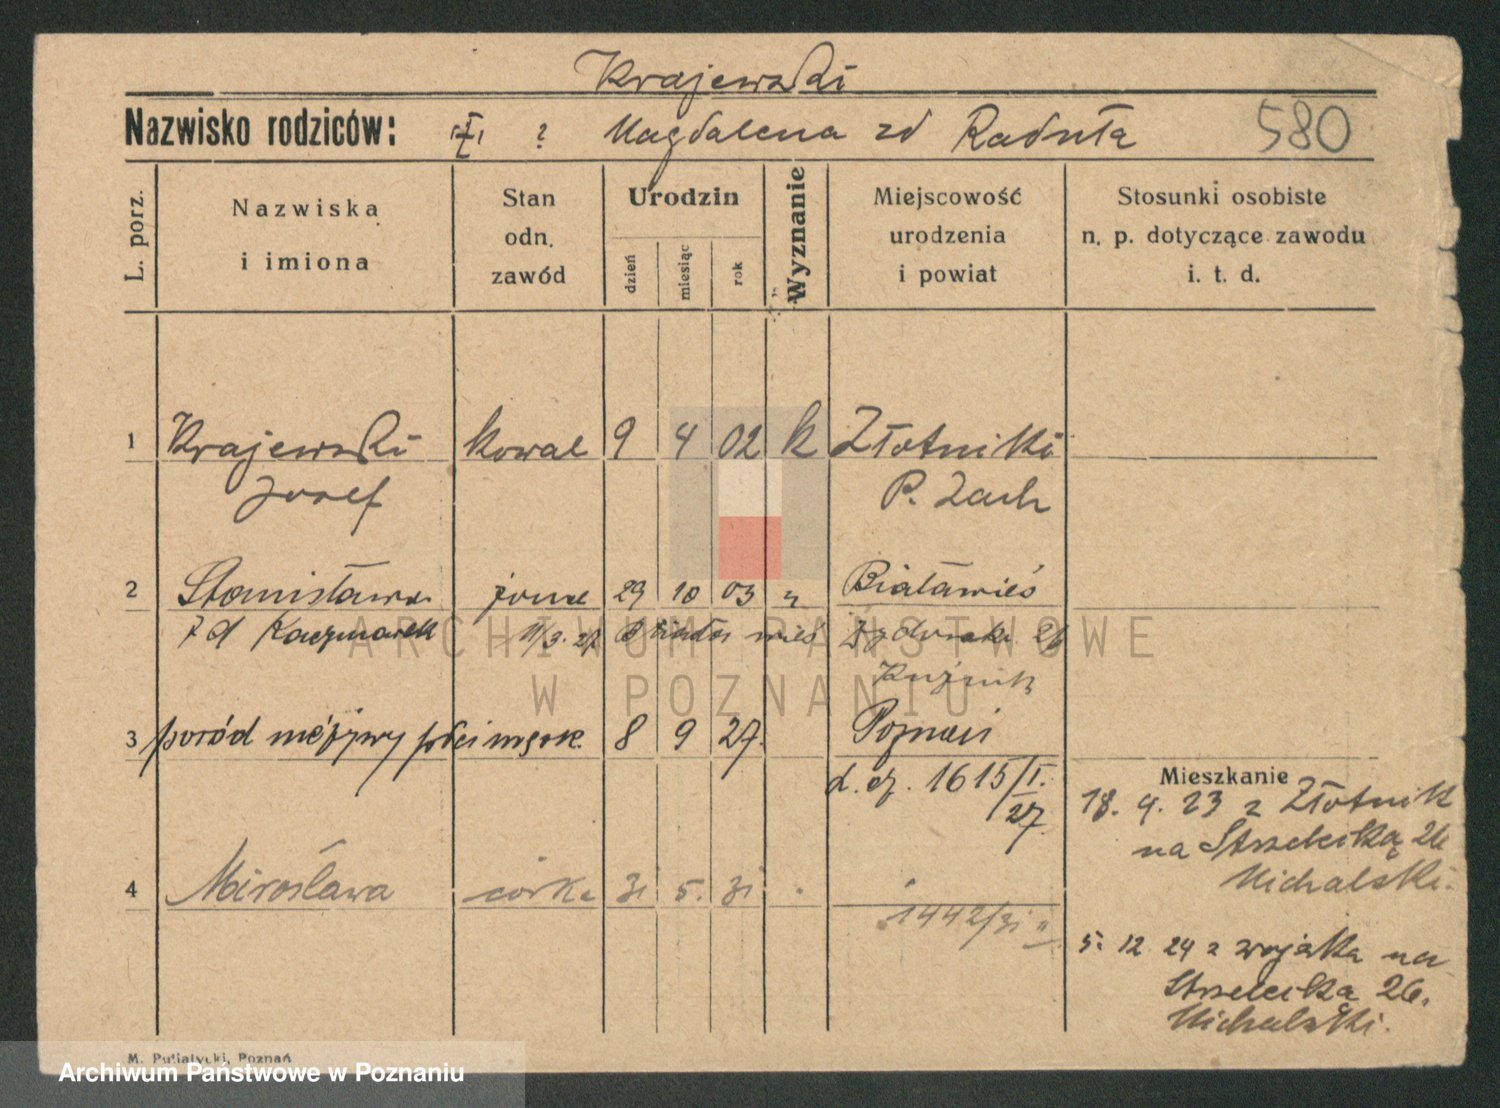 Krajewski
Nazwisko rodziców: ? Magdalena zd Raduła 580
L. porz.
Nazwiska
i imiona
Stan
odn.
zawód
Urodzin
dzień
miesiąc
rok
Wyznanie
Miejscowość
urodzenia
i powiat
Stosunki osobiste
n. p. dotyczące zawodu
i. t. d.
1 Krajewski kowal 9 4 02 k Złotniki
Józef P. Zach
2 Stanisława żona 29 10 03 " Białawieś
zd Kaczmarek 11/3.27
3 poród nieżywy płci męsk. 8 9 27. Poznań
d. cz. 1615/I.
27.
4 Mirosława córka 31 5. 31
1442/31 II
Mieszkanie
18. 4. 23 z Złotnik
na Strzelecką 26
Michalski.
5. 12. 24 z wojska na
Strzelecka 26.
Michalski.
ARCHIWUM PAŃSTWOWE
W POZNANIU
M. Putiatycki, Poznań
Archiwum Państwowe w Poznaniu